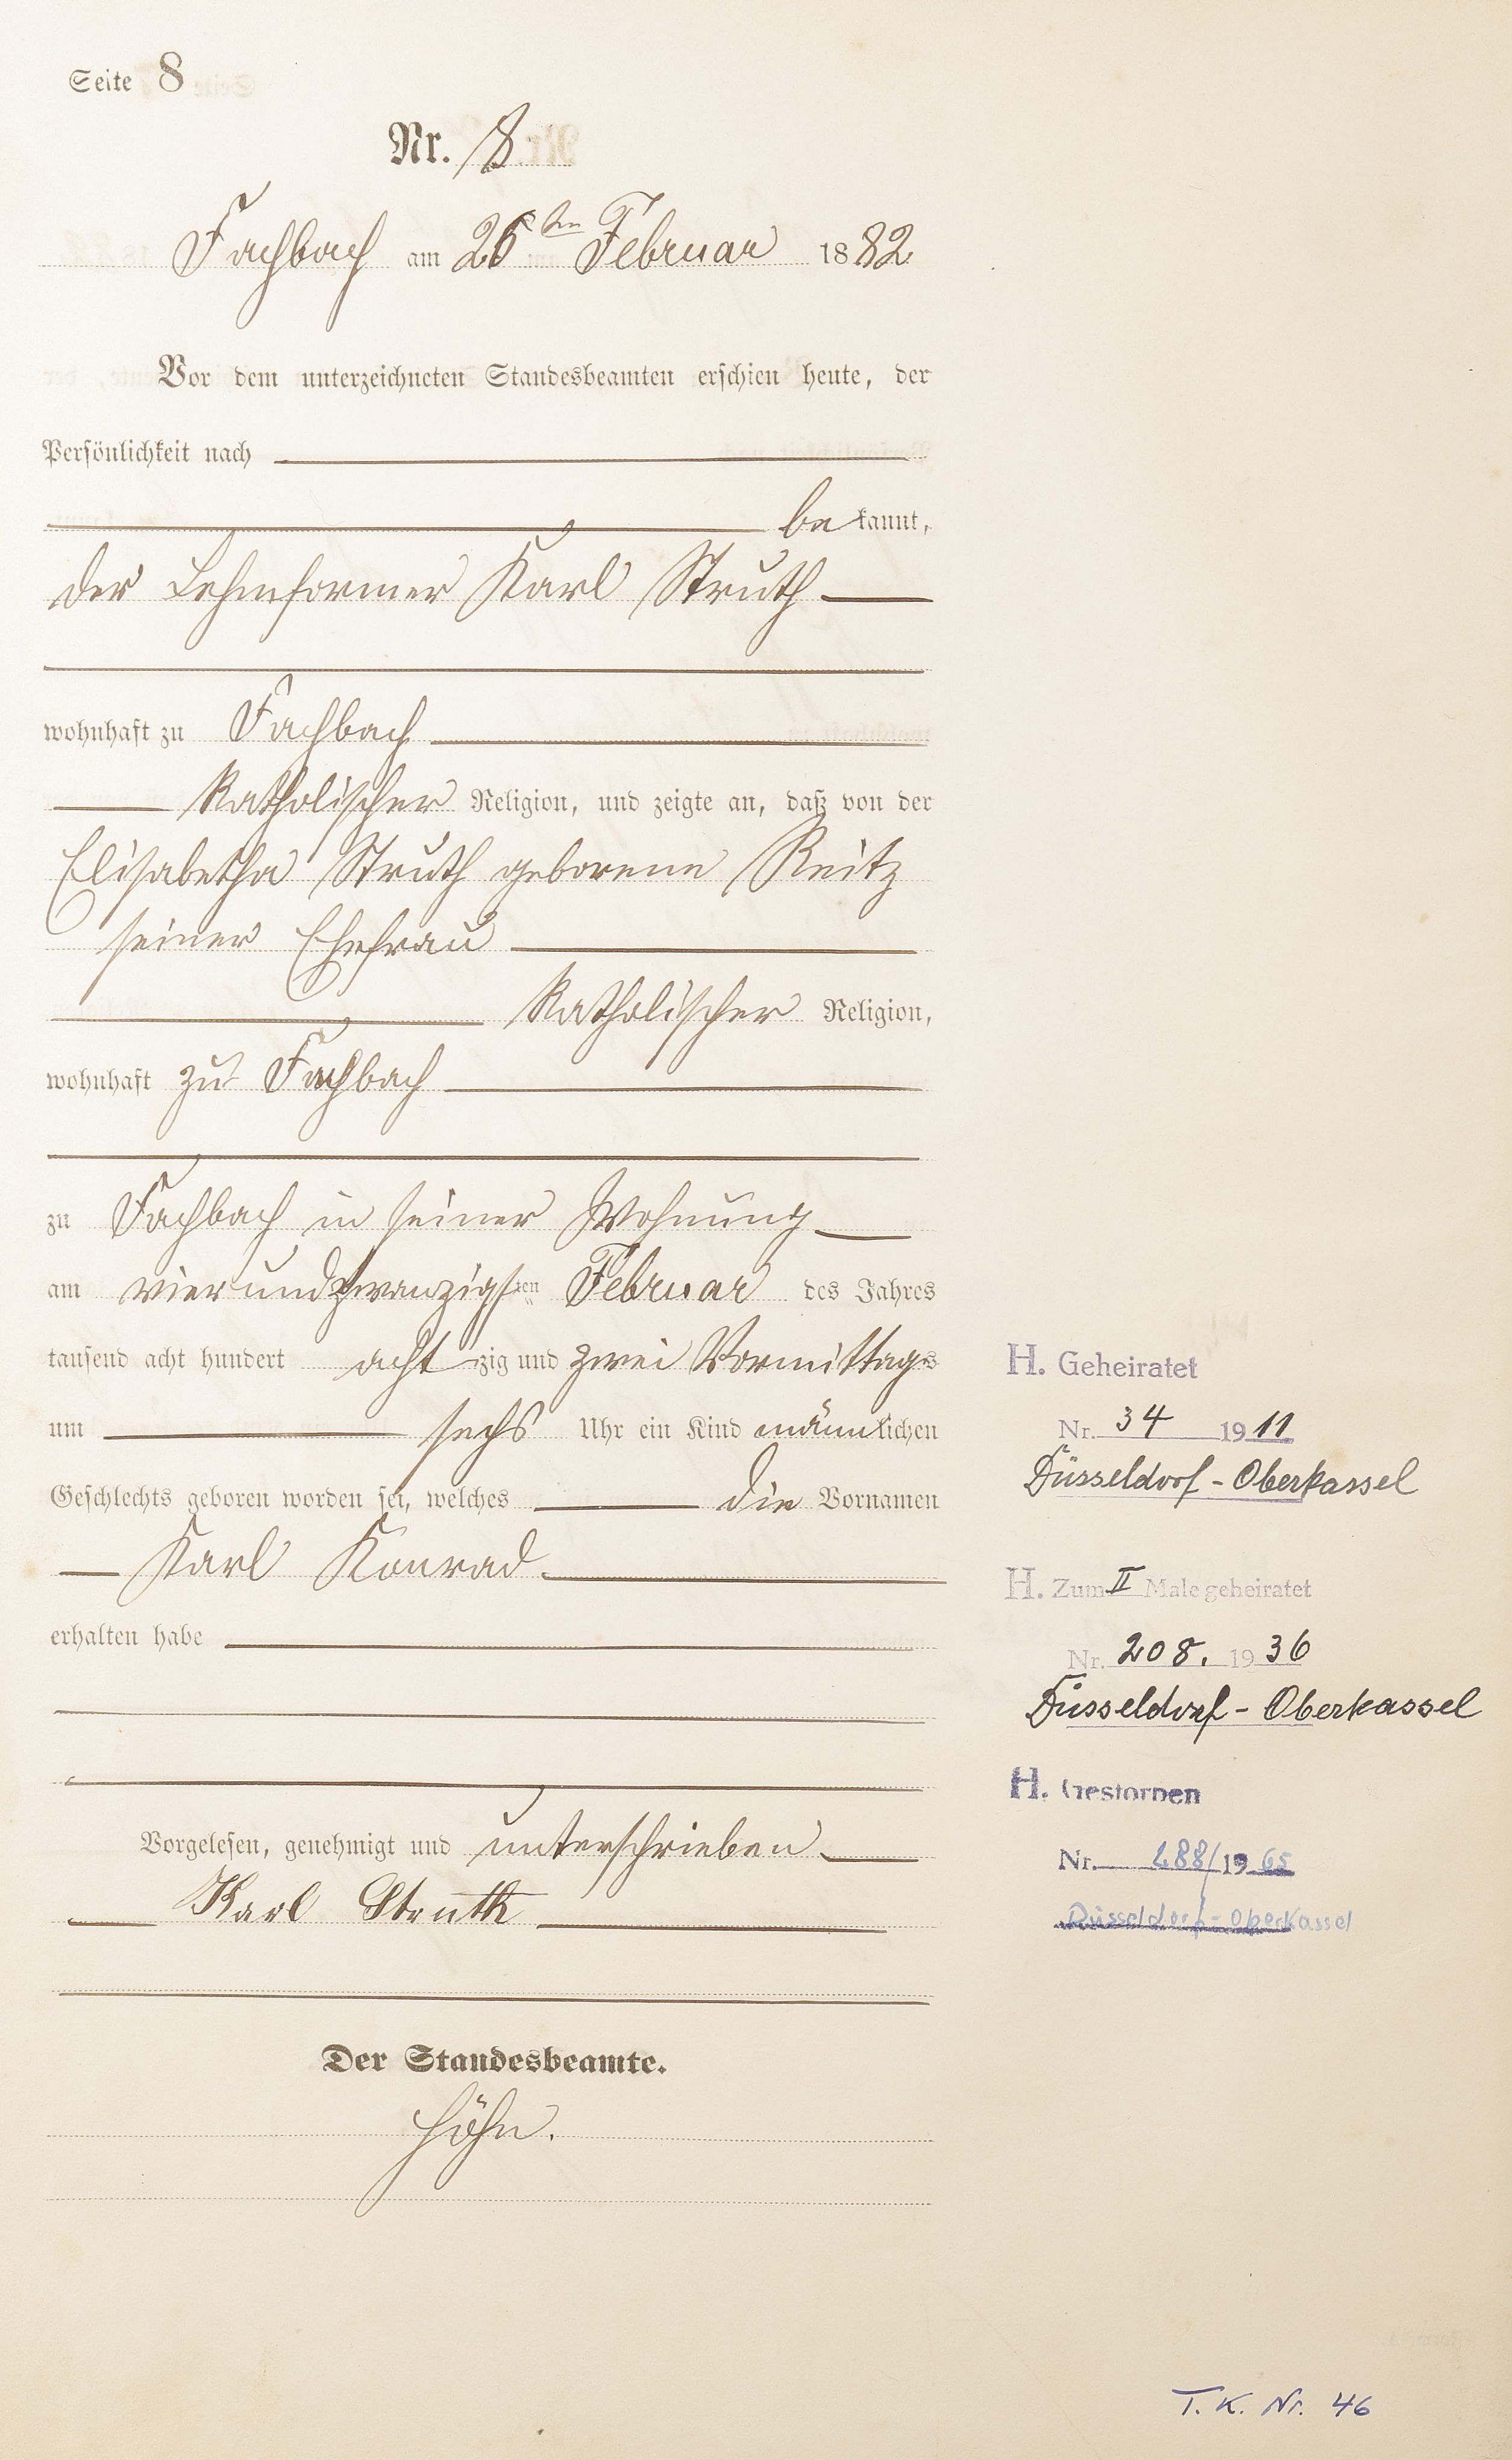 Seite 8
Nr. 8
Fachbach am 26ten Februar 1882
Vor dem unterzeichneten Standesbeamten erschien heute, der
Persönlichkeit nach
bekannt,
der Lehmformer Karl Struth
wohnhaft zu Fachbach
Katholischer Religion, und zeigte an, daß von der
Elisabetha Struth geborene Reitz
seiner Ehefrau
Katholischer Religion,
wohnhaft zu Fachbach
zu Fachbach in seiner Wohnung
am vierundzwanzigsten Februar des Jahres
tausend acht hundert achtzig und zwei Vormittags
um sechs Uhr ein Kind männlichen
Geschlechts geboren worden sei, welches die Vornamen
Karl Konrad
erhalten habe
Vorgelesen, genehmigt und unterschrieben
Karl Struth
Der Standesbeamte.
Höhn.
H. Geheiratet
Nr. 34 1911
Düsseldorf-Oberkassel
H. Zum II Male geheiratet
Nr. 208. 1936
Düsseldorf-Oberkassel
H. Gestorben
Nr. 288/1965
Düsseldorf-Oberkassel
T. K. Nr. 46